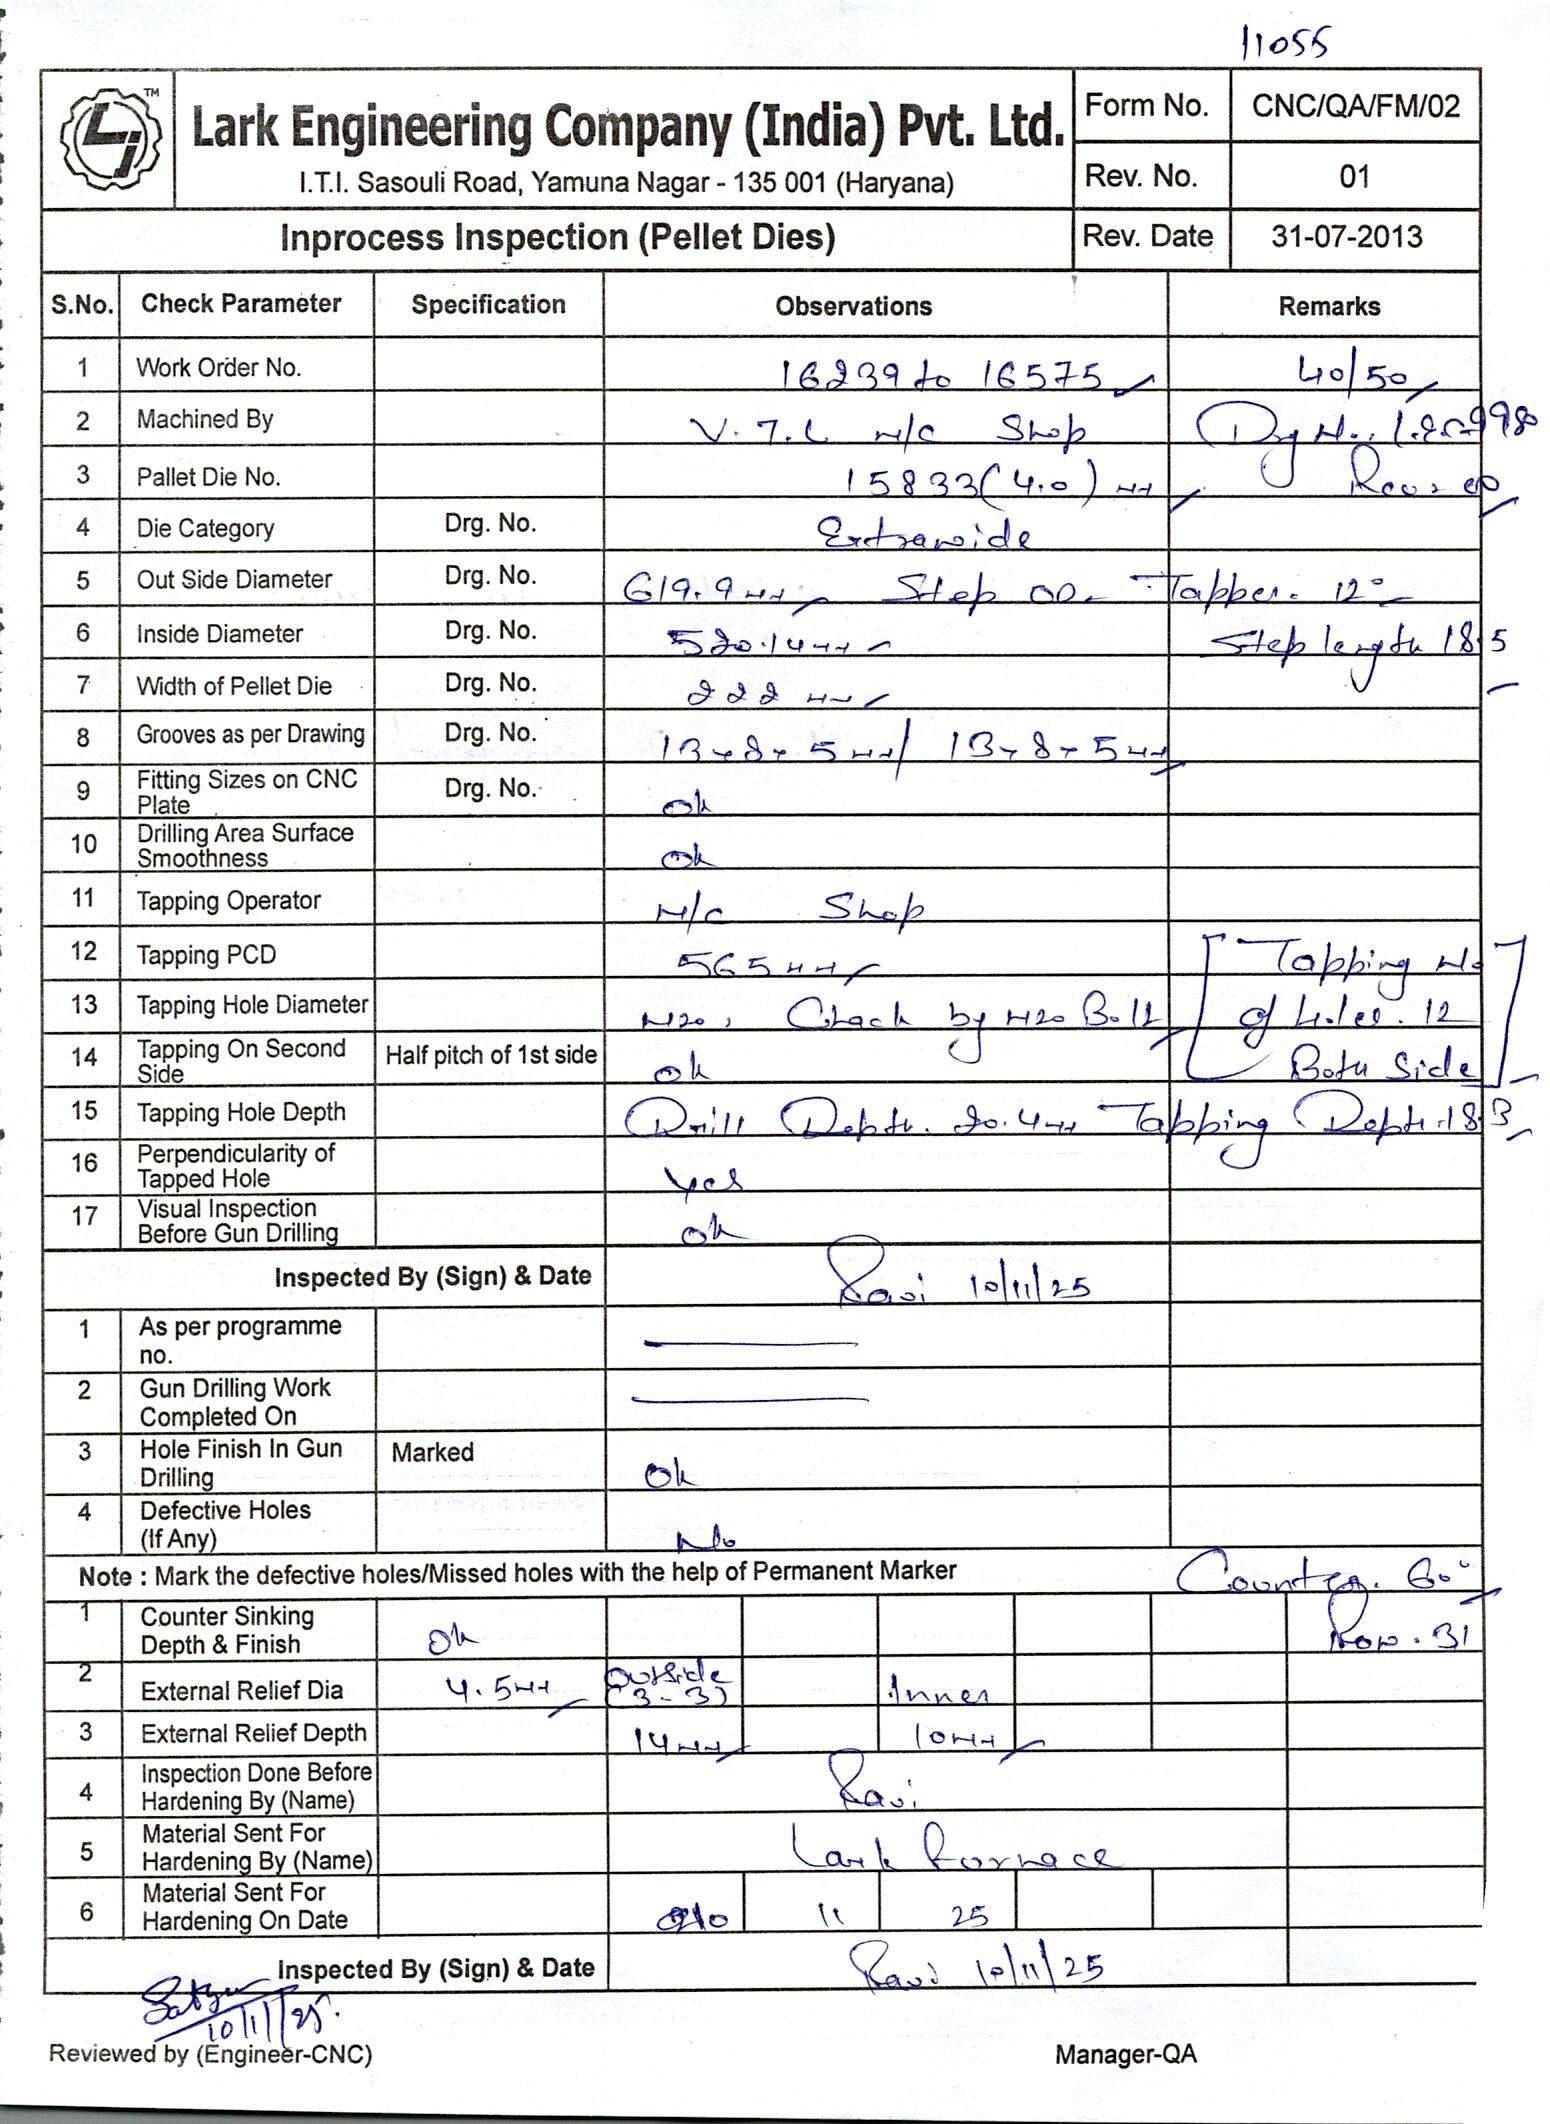 11055
TM
Lark Engineering Company (India) Pvt. Ltd.
I.T.I. Sasouli Road, Yamuna Nagar - 135 001 (Haryana)
Form No. CNC/QA/FM/02
Rev. No. 01
Inprocess Inspection (Pellet Dies)
Rev. Date 31-07-2013
S.No. Check Parameter Specification Observations Remarks
1 Work Order No. 16239 to 16575 40/50
2 Machined By V.T.L M/C Shop Drg No.
3 Pallet Die No. 15833(4.0) mm
4 Die Category Drg. No. Extrawide
5 Out Side Diameter Drg. No. 619.9mm Step OD Tapper. 12°
6 Inside Diameter Drg. No. 520.14mm Step length 18.5
7 Width of Pellet Die Drg. No. 222 mm
8 Grooves as per Drawing Drg. No. 13x8x5mm/ 13x8x5mm
9 Fitting Sizes on CNC Plate Drg. No. ok
10 Drilling Area Surface Smoothness ok
11 Tapping Operator M/C Shop
12 Tapping PCD 565mm [Tapping No
13 Tapping Hole Diameter M20, Chack by M20 Bolt of holes. 12
14 Tapping On Second Side Half pitch of 1st side ok Both Side]
15 Tapping Hole Depth Drill Depth. 20.4mm Tapping Depth.18.3
16 Perpendicularity of Tapped Hole Yes
17 Visual Inspection Before Gun Drilling ok
Inspected By (Sign) & Date Ravi 10/11/25
1 As per programme no.
2 Gun Drilling Work Completed On
3 Hole Finish In Gun Drilling Marked ok
4 Defective Holes (If Any) No
Note : Mark the defective holes/Missed holes with the help of Permanent Marker Counter. 60°
1 Counter Sinking Depth & Finish ok Row. 31
2 External Relief Dia 4.5mm Outside (3-3) Inner
3 External Relief Depth 14mm 10mm
4 Inspection Done Before Hardening By (Name) Ravi
5 Material Sent For Hardening By (Name) Lark Furnace
6 Material Sent For Hardening On Date 10 11 25
Inspected By (Sign) & Date Ravi 10/11/25
10/11/25.
Reviewed by (Engineer-CNC) Manager-QA